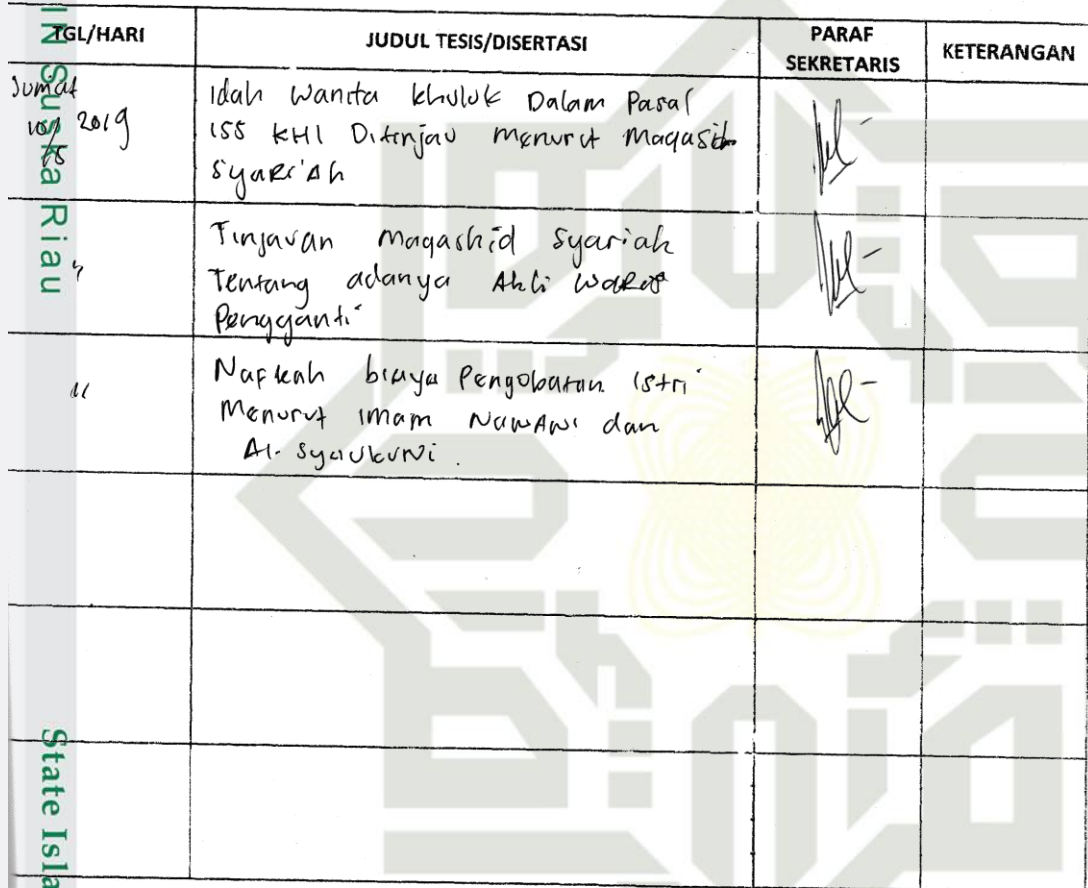 IN Suska Riau
State Isla
TGL/HARI
JUDUL TESIS/DISERTASI
PARAF
SEKRETARIS
KETERANGAN
Jumat
10/5 2019
Idah Wanita Khuluk Dalam Pasal
155 KHI Ditinjau Menurut Maqasid
Syari'Ah
Tinjauan Maqashid Syariah
Tentang adanya Ahli Waris
Pengganti
Nafkah biaya Pengobatan Istri
Menurut Imam Nawawi dan
Al-Syaukani.